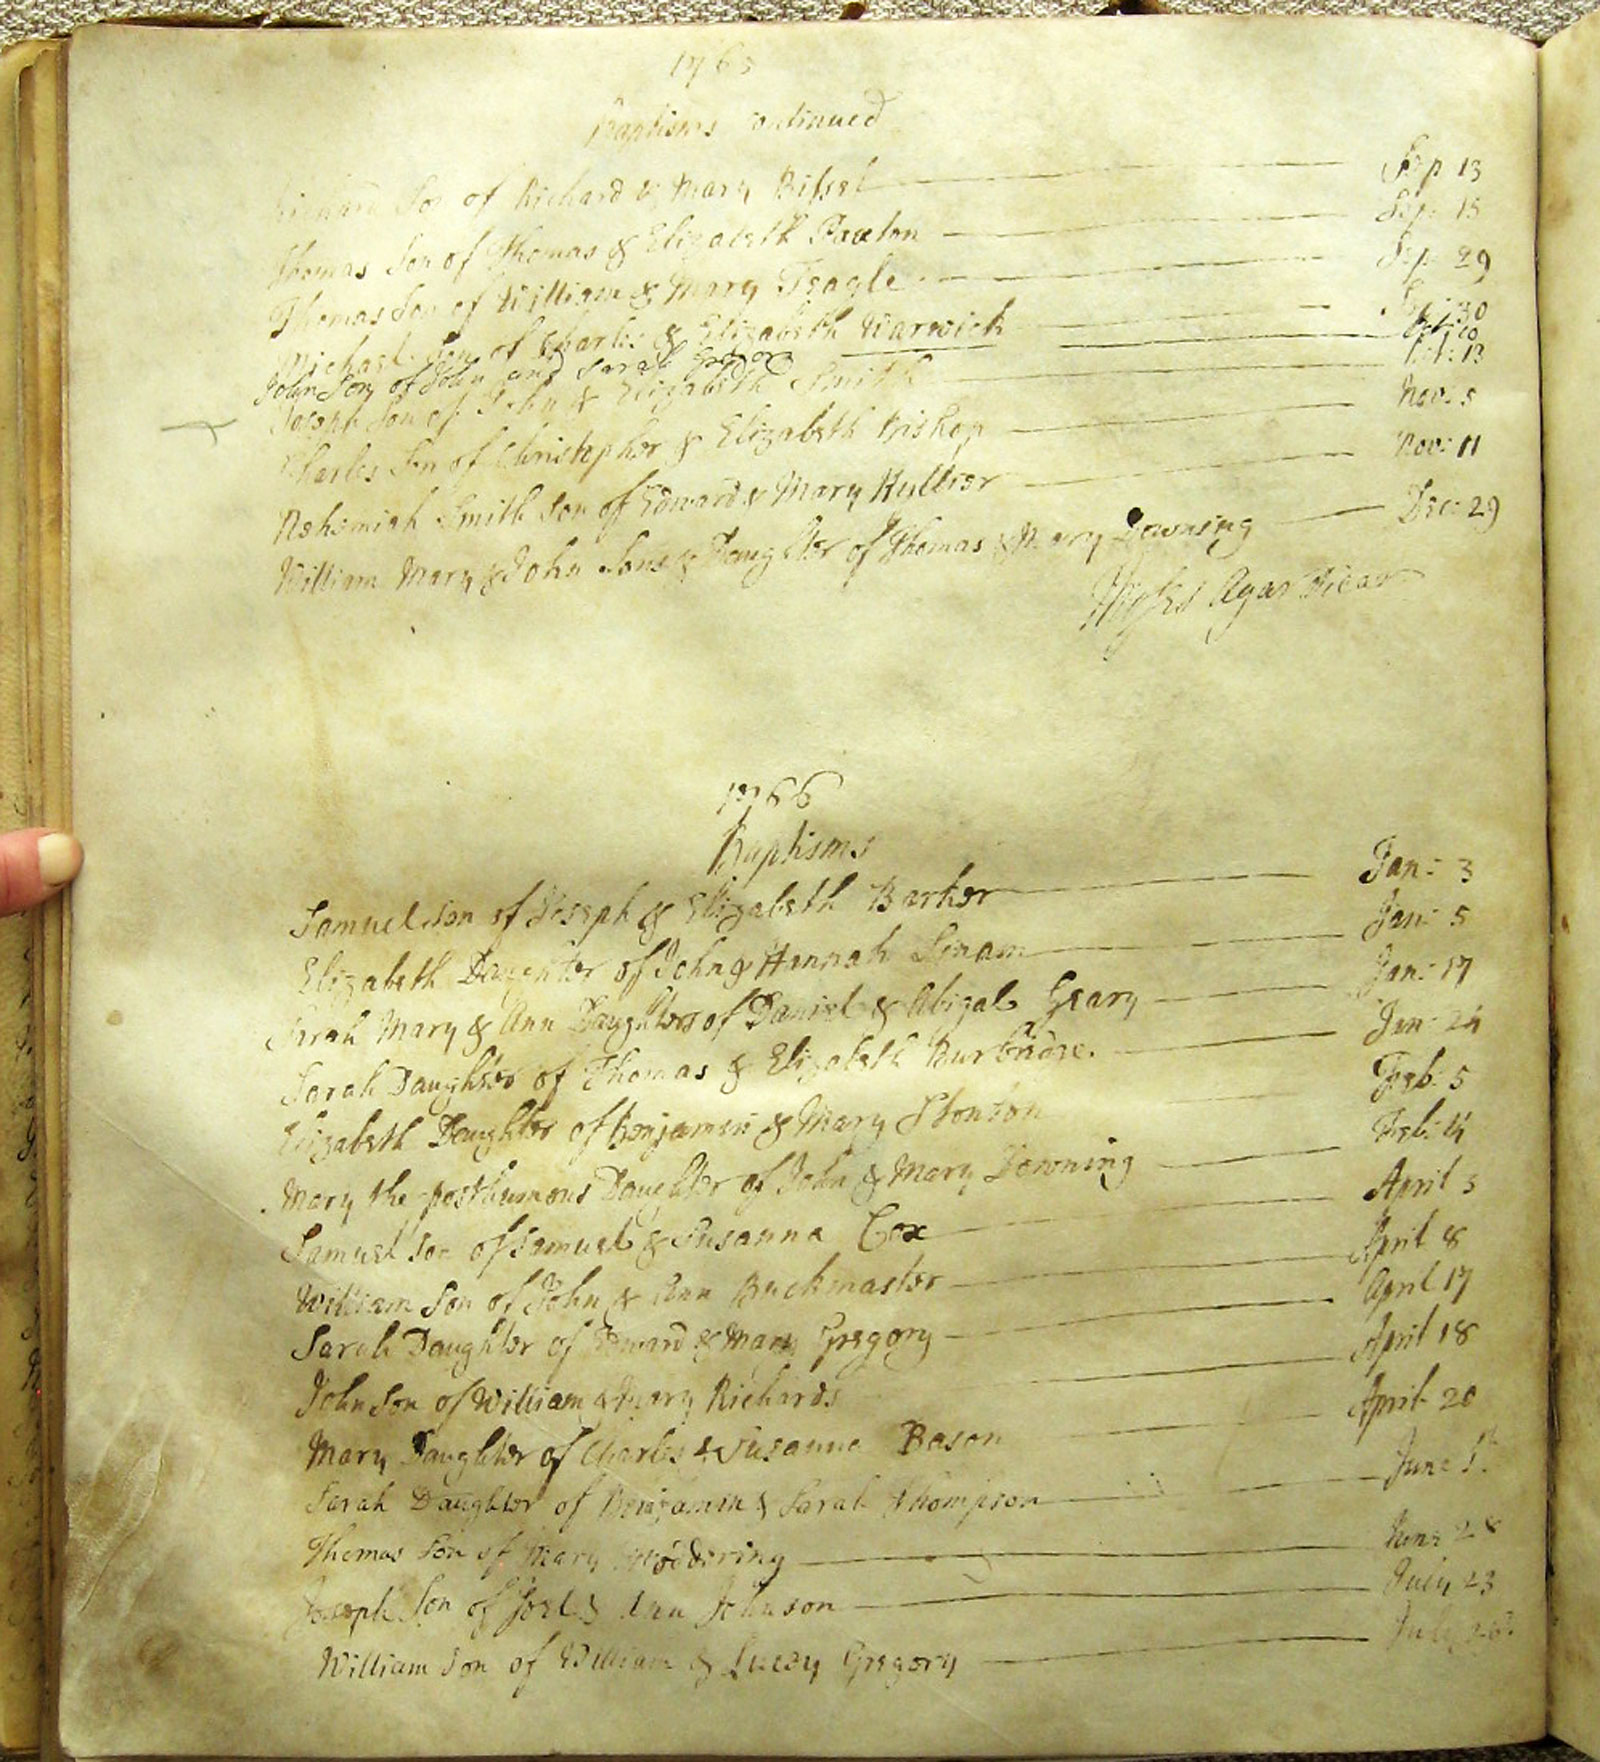 1765
Baptisms continued
Richard Son of Richard & Mary Bissel Sep 13
Thomas Son of Thomas & Elizabeth Paxton Sep: 15
Thomas Son of William & Mary Teagle Sep: 29
Michael Son of Charles & Elizabeth Warwick Sep: 30
John Son of John and Sarah Oct: 10
Joseph Son of John & Elizabeth Smith Oct: 13
Charles Son of Christopher & Elizabeth Bishop Nov: 5
Nehemiah Smith Son of Edward & Mary Hullier Nov: 11
William Mary & John Sons & Daughter of Thomas & Mary Downing Dec: 29
Moses Agar Vicar
1766
Baptisms
Samuel Son of Joseph & Elizabeth Barker Jan: 3
Elizabeth Daughter of John & Hannah Jan: 5
Sarah Mary & Ann Daughters of Daniel & Abigal Geary Jan: 17
Sarah Daughter of Thomas & Elizabeth Burbridge. Jan: 24
Elizabeth Daughter of Benjamin & Mary Feb: 5
Mary the posthumous Daughter of John & Mary Downing Feb:
Samuel Son of Samuel & Susanna Cox April 3
William Son of John & Ann Buckmaster April 8
Sarah Daughter of Edward & Mary Gregory April 17
John Son of William & Mary Richards April 18
Mary Daughter of Charles & Susanna Bason April 20
Sarah Daughter of Benjamin & Sarah Thompson June 1st
Thomas Son of Mary June 28
Joseph Son of Joel & Ann Johnson July 23
William Son of William & Lucey Gregory July